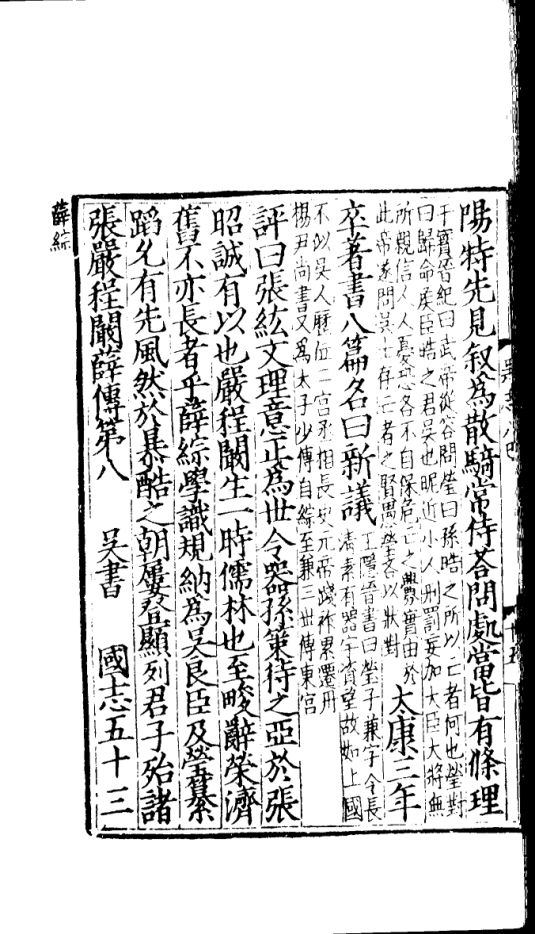 陽特先見叙為散騎常侍荅問處當皆有條理
干寶晉紀曰武帝從容問瑩曰孫晧之所以亡者何也瑩對
曰歸命侯臣晧之君吳也昵近小人刑罰妄加大臣大將無
所親信人人憂恐各不自保危亡之釁實由於
此帝遂問吳士存亡者之賢愚瑩各以狀對
太康三年
卒著書八篇名曰新議
王隱晉書曰瑩子兼字令長
清素有器宇資望故如上國
不似吳人歷位二宮丞相長史元帝踐祚累遷丹
楊尹尚書又為太子少傅自綜至兼三世傅東宮
評曰張紘文理意正為世令器孫策待之亞於張
昭誠有以也嚴程闞生一時儒林也至畯辭榮濟
舊不亦長者乎薛綜學識規納為吳良臣及瑩纂
蹈允有先風然於暴酷之朝屢登顯列君子殆諸
張嚴程闞薛傳第八 吳書 國志五十三
薛綜